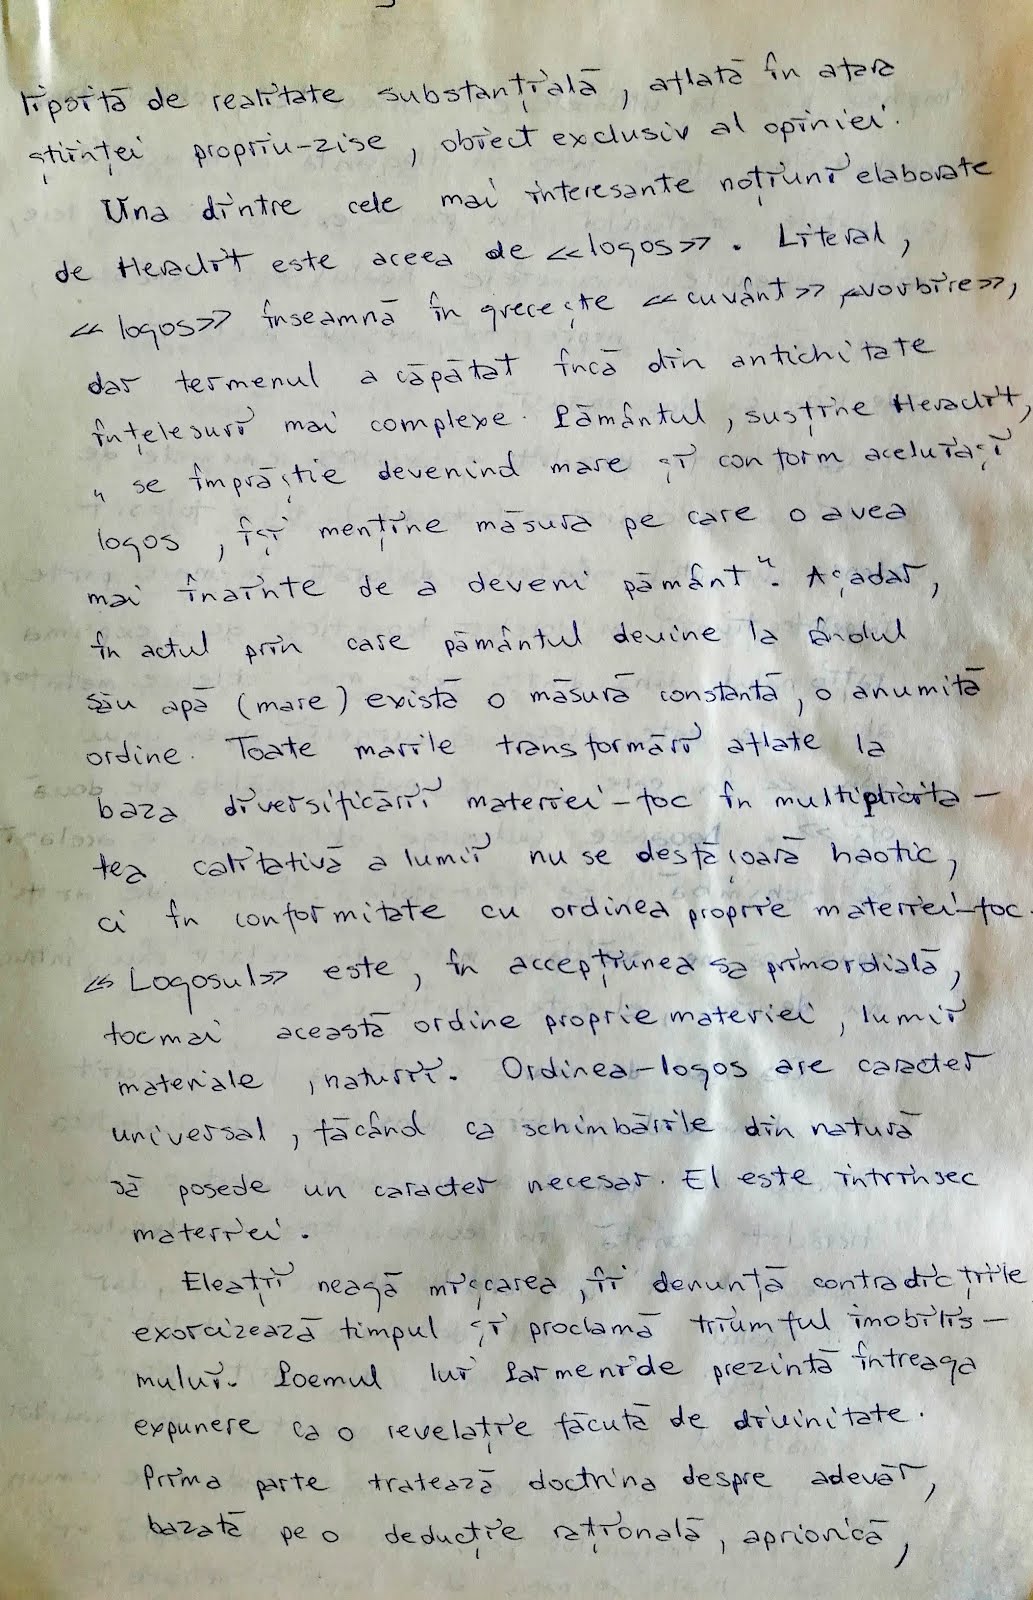 lipsită de realitate substanțială, aflată în afara
științei propriu-zise, obiect exclusiv al opiniei.
Una dintre cele mai interesante noțiuni elaborate
de Heraclit este aceea de «logos». Literal,
«logos» înseamnă în grecește «cuvânt» «vorbire»,
dar termenul a căpătat încă din antichitate
înțelesuri mai complexe. Pământul, susține Heraclit,
„se împrăștie devenind mare și conform aceluiași
logos, își menține măsura pe care o avea
mai înainte de a deveni pământ". Așadar,
în actul prin care pământul devine la rândul
său apă (mare) există o măsură constantă, o anumită
ordine. Toate marile transformări aflate la
baza diversificării materiei-foc în multiplicita-
tea calitativă a lumii nu se desfășoară haotic,
ci în conformitate cu ordinea proprie materiei-foc.
«Logosul» este, în accepțiunea sa primordială,
tocmai această ordine proprie materiei, lumii
materiale, naturii. Ordinea-logos are caracter
universal, făcând ca schimbările din natură
să posede un caracter necesar. El este intrinsec
materiei.
Eleații neagă mișcarea, îi denunță contradicțiile
exorcizează timpul și proclamă triumful imobilis-
mului. Poemul lui Parmenide prezintă întreaga
expunere ca o revelație făcută de divinitate.
Prima parte tratează doctrina despre adevăr,
bazată pe o deducție rațională, apriorică,